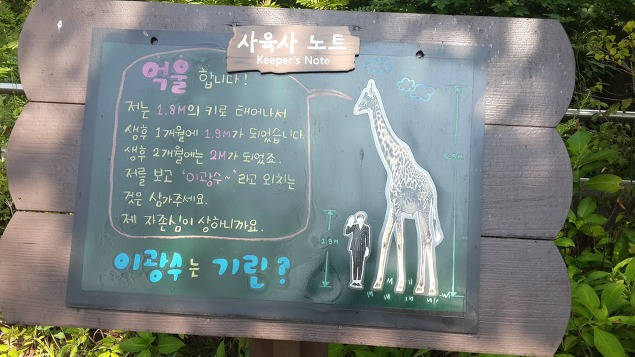 사육사 노트
Keeper's Note
억울 합니다!
저는 1.8M의 키로 태어나서
생후 1개월에 1.9M가 되었습니다.
생후 2개월에는 2M가 되었죠.
저를 보고 '이광수~'라고 외치는
것은 삼가주세요.
제 자존심이 상하니까요.
이광수는 기린?